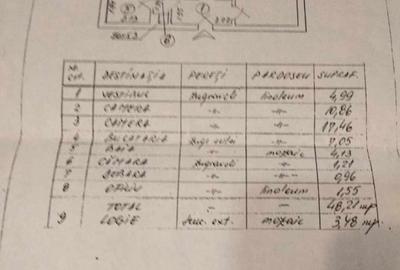 NR. CRT. DESTINAȚIA PEREȚI PARDOSELI SUPRAF.
1 VESTIBUL Zugrăveli linoleum 4,99
2 CAMERA -"- -"- 10,86
3 CAMERA -"- -"- 17,46
4 BUCATARIA -"- 7,05
5 BAIA -"- mozaic 4,13
6 CĂMARA Zugrăveli -"- 1,21
7 DEBARA -"- -"- 0,96
8 OFICIU -"- linoleum 1,55
TOTAL — — 48,21 mp.
9 LOGIE ext. mozaic 3,48 mp.